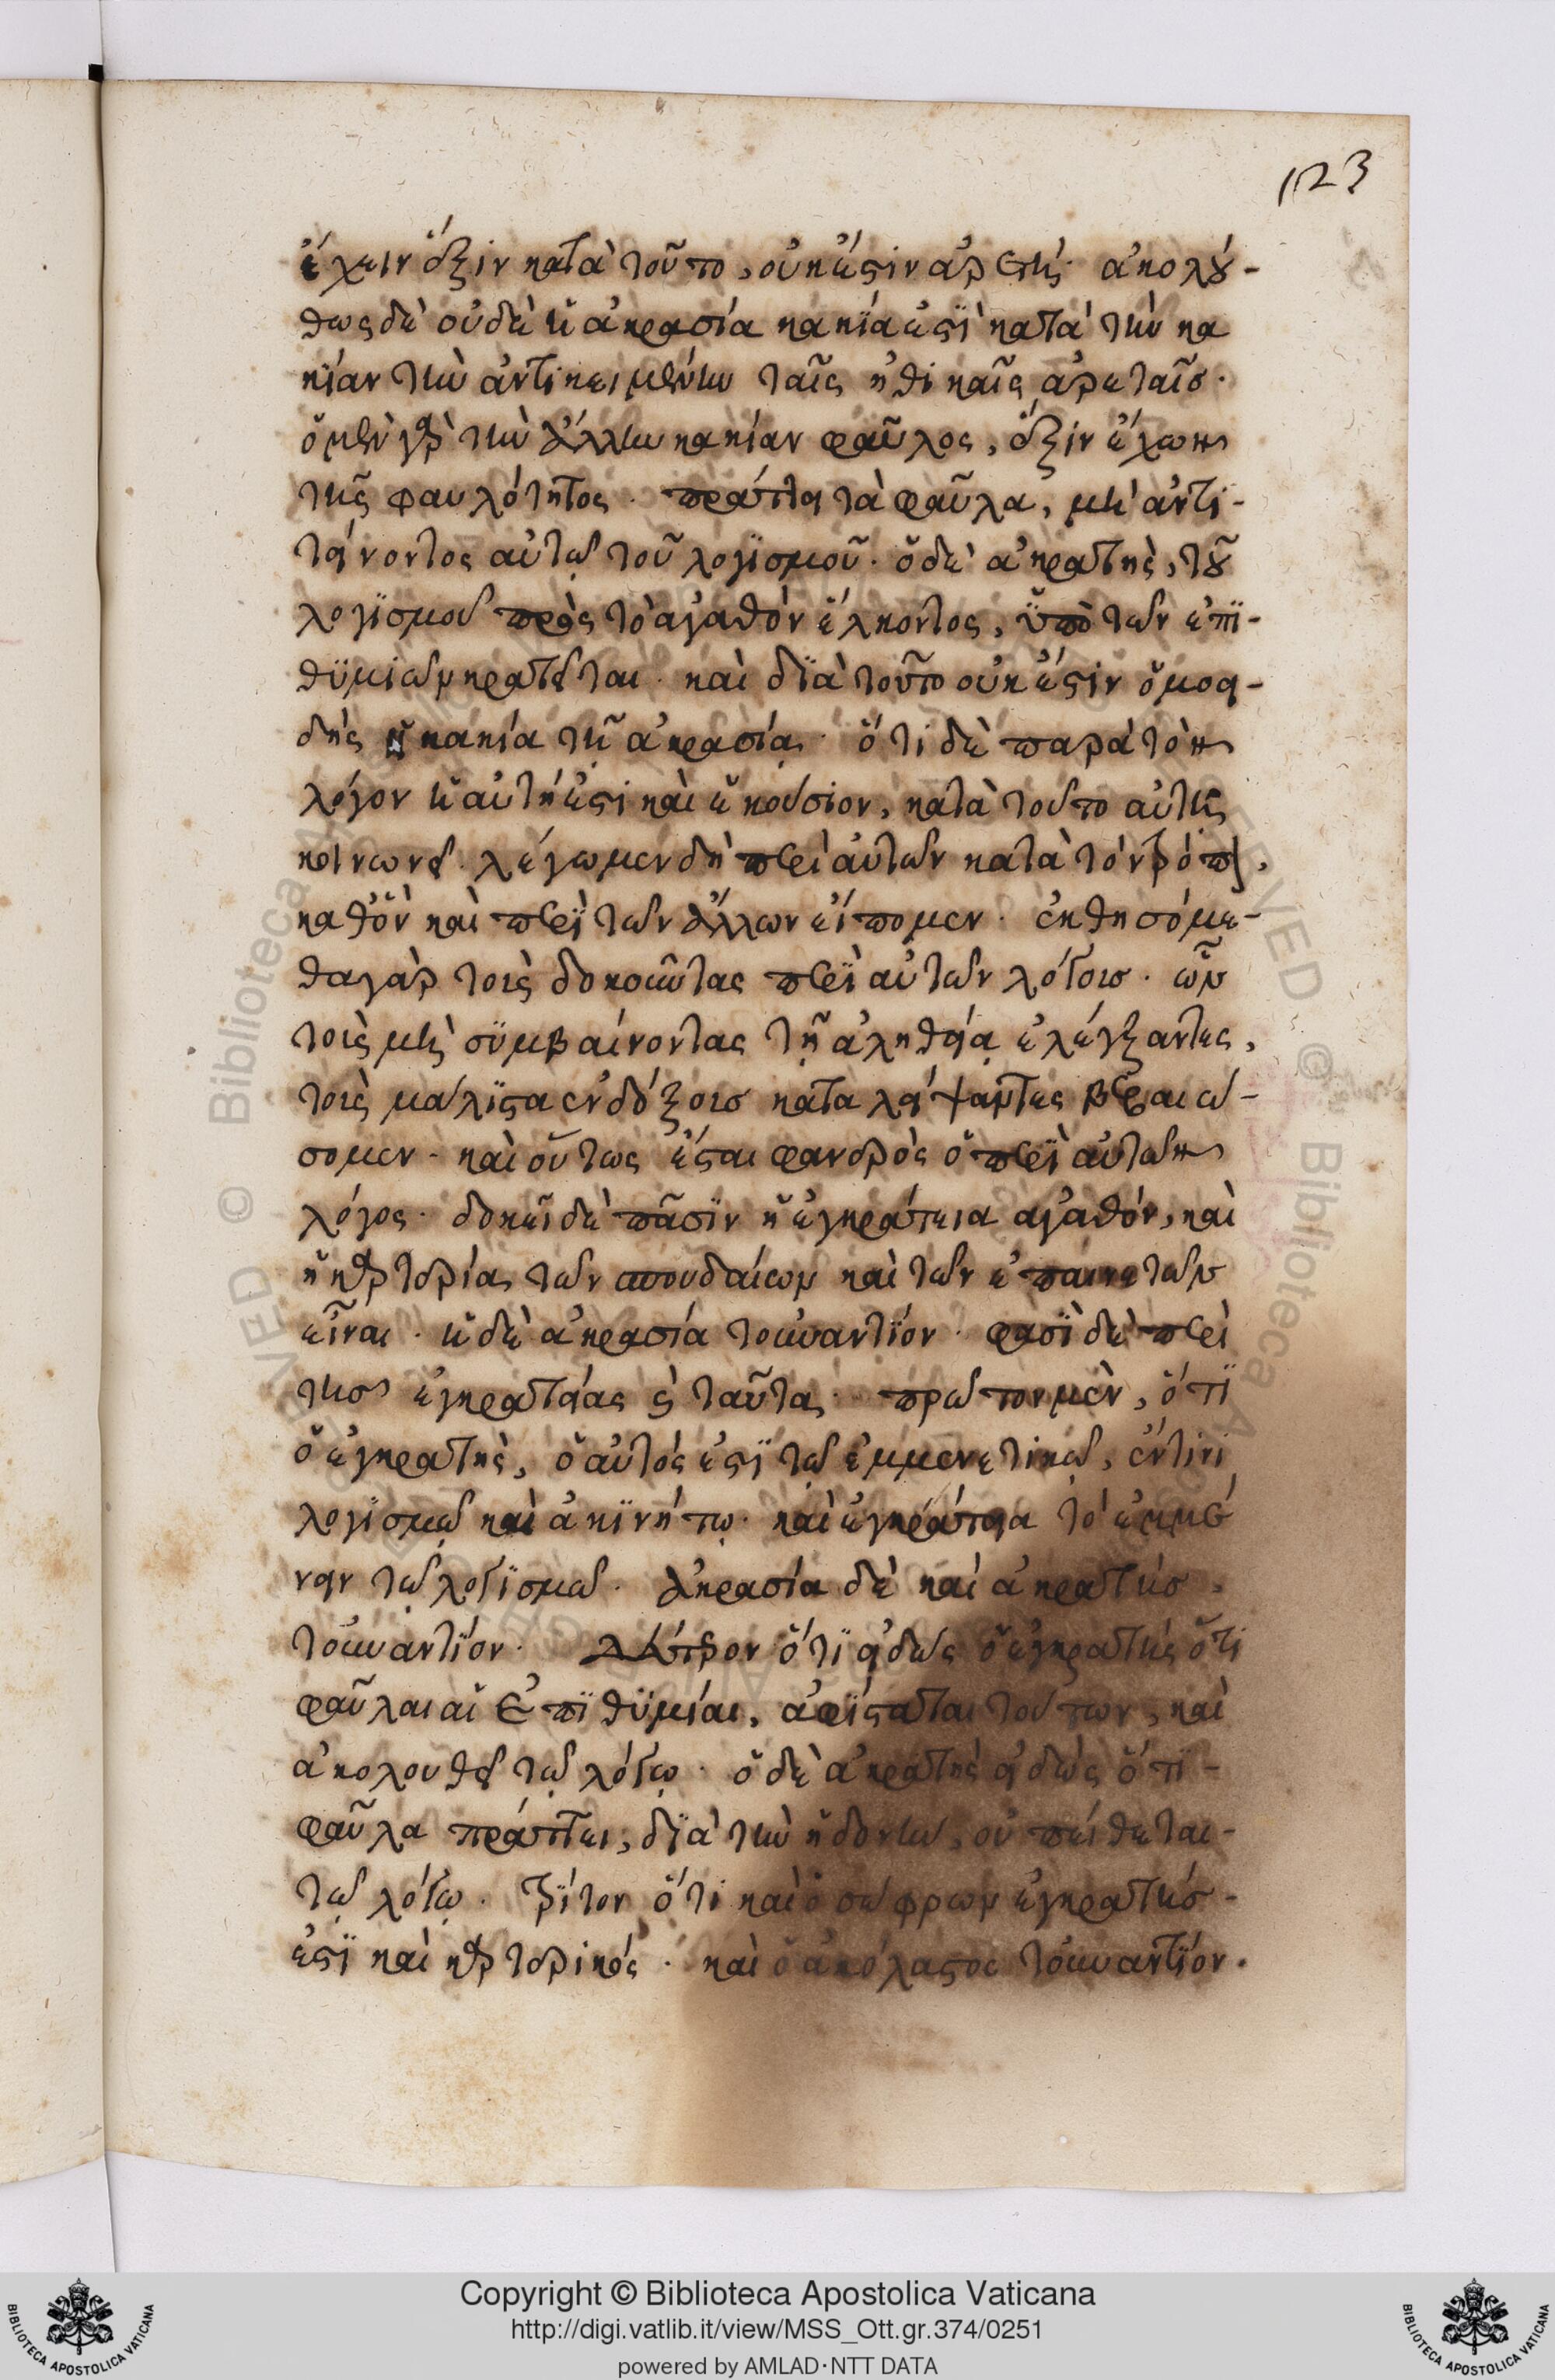 123
ἔχειν ἕξιν κατὰ τοῦτο, οὐκ ἔστιν ἀρετή· ἀκολού-
θως δὲ οὐδὲ ἡ ἀκρασία κακία ἐστὶ κατὰ τὴν κα
κίαν τὴν ἀντικειμένην ταῖς ἠθικαῖς ἀρεταῖς·
ὁ μὲν γὰρ τὴν ἄλλην κακίαν φαῦλος, ἕξιν ἔχων
τῆς φαυλότητος· πράττει τὰ φαῦλα, μὴ ἀντι-
τείνοντος αὐτῷ τοῦ λογισμοῦ· ὁ δὲ ἀκρατὴς, τοῦ
λογισμοῦ πρὸς τὸ ἀγαθὸν ἕλκοντος, ὑπὸ τῶν ἐπι-
θυμιῶν κρατεῖται· καὶ διὰ τοῦτο οὐκ ἔστιν ὁμοει-
δὴς ἡ κακία τῇ ἀκρασίᾳ· ὅτι δὲ παρὰ τὸν
λόγον ἡ αὐτή ἐστι καὶ ἑκούσιον, κατὰ τοῦτο αὐτῆς
κοινωνεῖ· λέγωμεν δὴ περὶ αὐτῶν κατὰ τὸν τρόπον,
καθ' ὃν καὶ περὶ τῶν ἄλλων εἴπομεν· ἐκθησόμε-
θα γὰρ τοὺς δοκοῦντας περὶ αὐτῶν λόγοις· ὧν
τοὺς μὴ συμβαίνοντας τῇ ἀληθείᾳ ἐλέγξαντες,
τοὺς μάλιστα ἐνδόξοις καταλείψαντες βεβαιώ-
σομεν· καὶ οὕτως ἔσται φανερὸς ὁ περὶ αὐτῶν
λόγος· δοκεῖ δὲ πᾶσιν ἡ ἐγκράτεια ἀγαθόν, καὶ
ἡ καρτερία, τῶν σπουδαίων καὶ τῶν ἐπαινετῶν
εἶναι· ἡ δὲ ἀκρασία τοὐναντίον· φασὶ δὲ περὶ
τῆς ἐγκρατείας ϛ ταῦτα· πρῶτον μὲν, ὅτι
ὁ ἐγκρατὴς, ὁ αὐτός ἐστι τῷ ἐμμενετικῷ, ἔν τινι
λογισμῷ καὶ ἀκινήτῳ· καὶ ἐγκράτεια τὸ ἐμμέ
νειν τῷ λογισμῷ· ἀκρασία δὲ καὶ ἀκρατής
τοὐναντίον· δεύτερον ὅτι εἰδὼς ὁ ἐγκρατὴς ὅτι
φαῦλαι αἱ ἐπιθυμίαι, ἀφίσταται τούτων, καὶ
ἀκολουθεῖ τῷ λόγῳ· ὁ δὲ ἀκρατὴς εἰδὼς ὅτι-
φαῦλα πράττει, διὰ τὴν ἡδονὴν, οὐ πείθεται-
τῷ λόγῳ· τρίτον ὅτι καὶ ὁ σώφρων ἐγκρατής-
ἐστι καὶ καρτερικός· καὶ ὁ ἀκόλαστος τοὐναντίον.
Copyright © Biblioteca Apostolica Vaticana
http://digi.vatlib.it/view/MSS_Ott.gr.374/0251
powered by AMLAD·NTT DATA